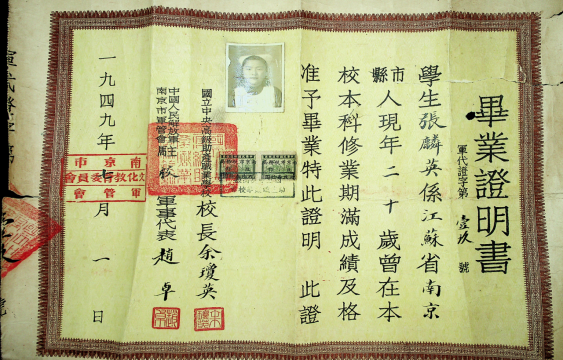 畢業證明書
軍代證字第壹玖號
學生張麟英係江蘇省南京
市
縣
人現年二十歲曾在本
校本科修業期滿成績及格
准予畢業特此證明 此證
國立中央高級助產職業學校校長余瓊英
中國人民解放軍
南京市軍管會
軍事代表趙卓
一九四九年七月一日
南京市
文化教育委員會
軍管會